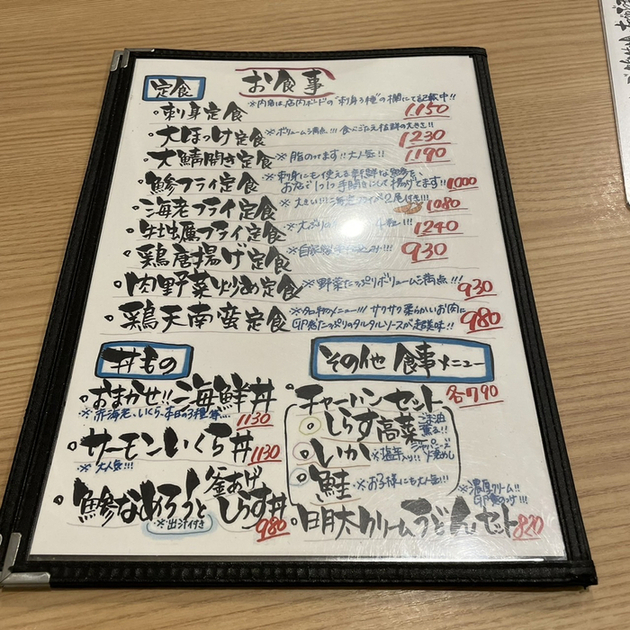 お食事
定食
・刺身定食 ※内容は店内ボードの"刺身3種"の欄にて記載中!! 1150
・大ほっけ定食 ※ボリューム満点!!! 食べごたえ抜群の大きさ!! 1230
・大鯖開き定食 ※脂のってます!!大人気!! 1190
・鯵フライ定食 ※刺身にも使える新鮮な鯵を、
おなじ1つ1つ手開きにして揚げてます!! 1000
・海老フライ定食 ※大きい海老フライが2尾付き!!! 1080
・牡蠣フライ定食 ※大ぶりの 1240
・鶏唐揚げ定食 ※自家製 930
・肉野菜炒め定食 ※野菜たっぷりボリューム満点!!! 930
・鶏天南蛮定食 ※名物メニュー!!! サクサク柔らかいお肉に
卵たっぷりのタルタルソースが超美味!! 980
丼もの
・おまかせ!!海鮮丼
※赤海老、いくら、本日の3種 1130
・サーモンいくら丼 1130
※大人気!!!
・鯵なめろうと釜あげしらす丼 980
※出汁付き
その他食事メニュー
・チャーハンセット 各790
しらす高菜
いか
鮭 ※お子様にも大人気!!
※濃厚クリーム!!
・明太クリームうどんセット 820